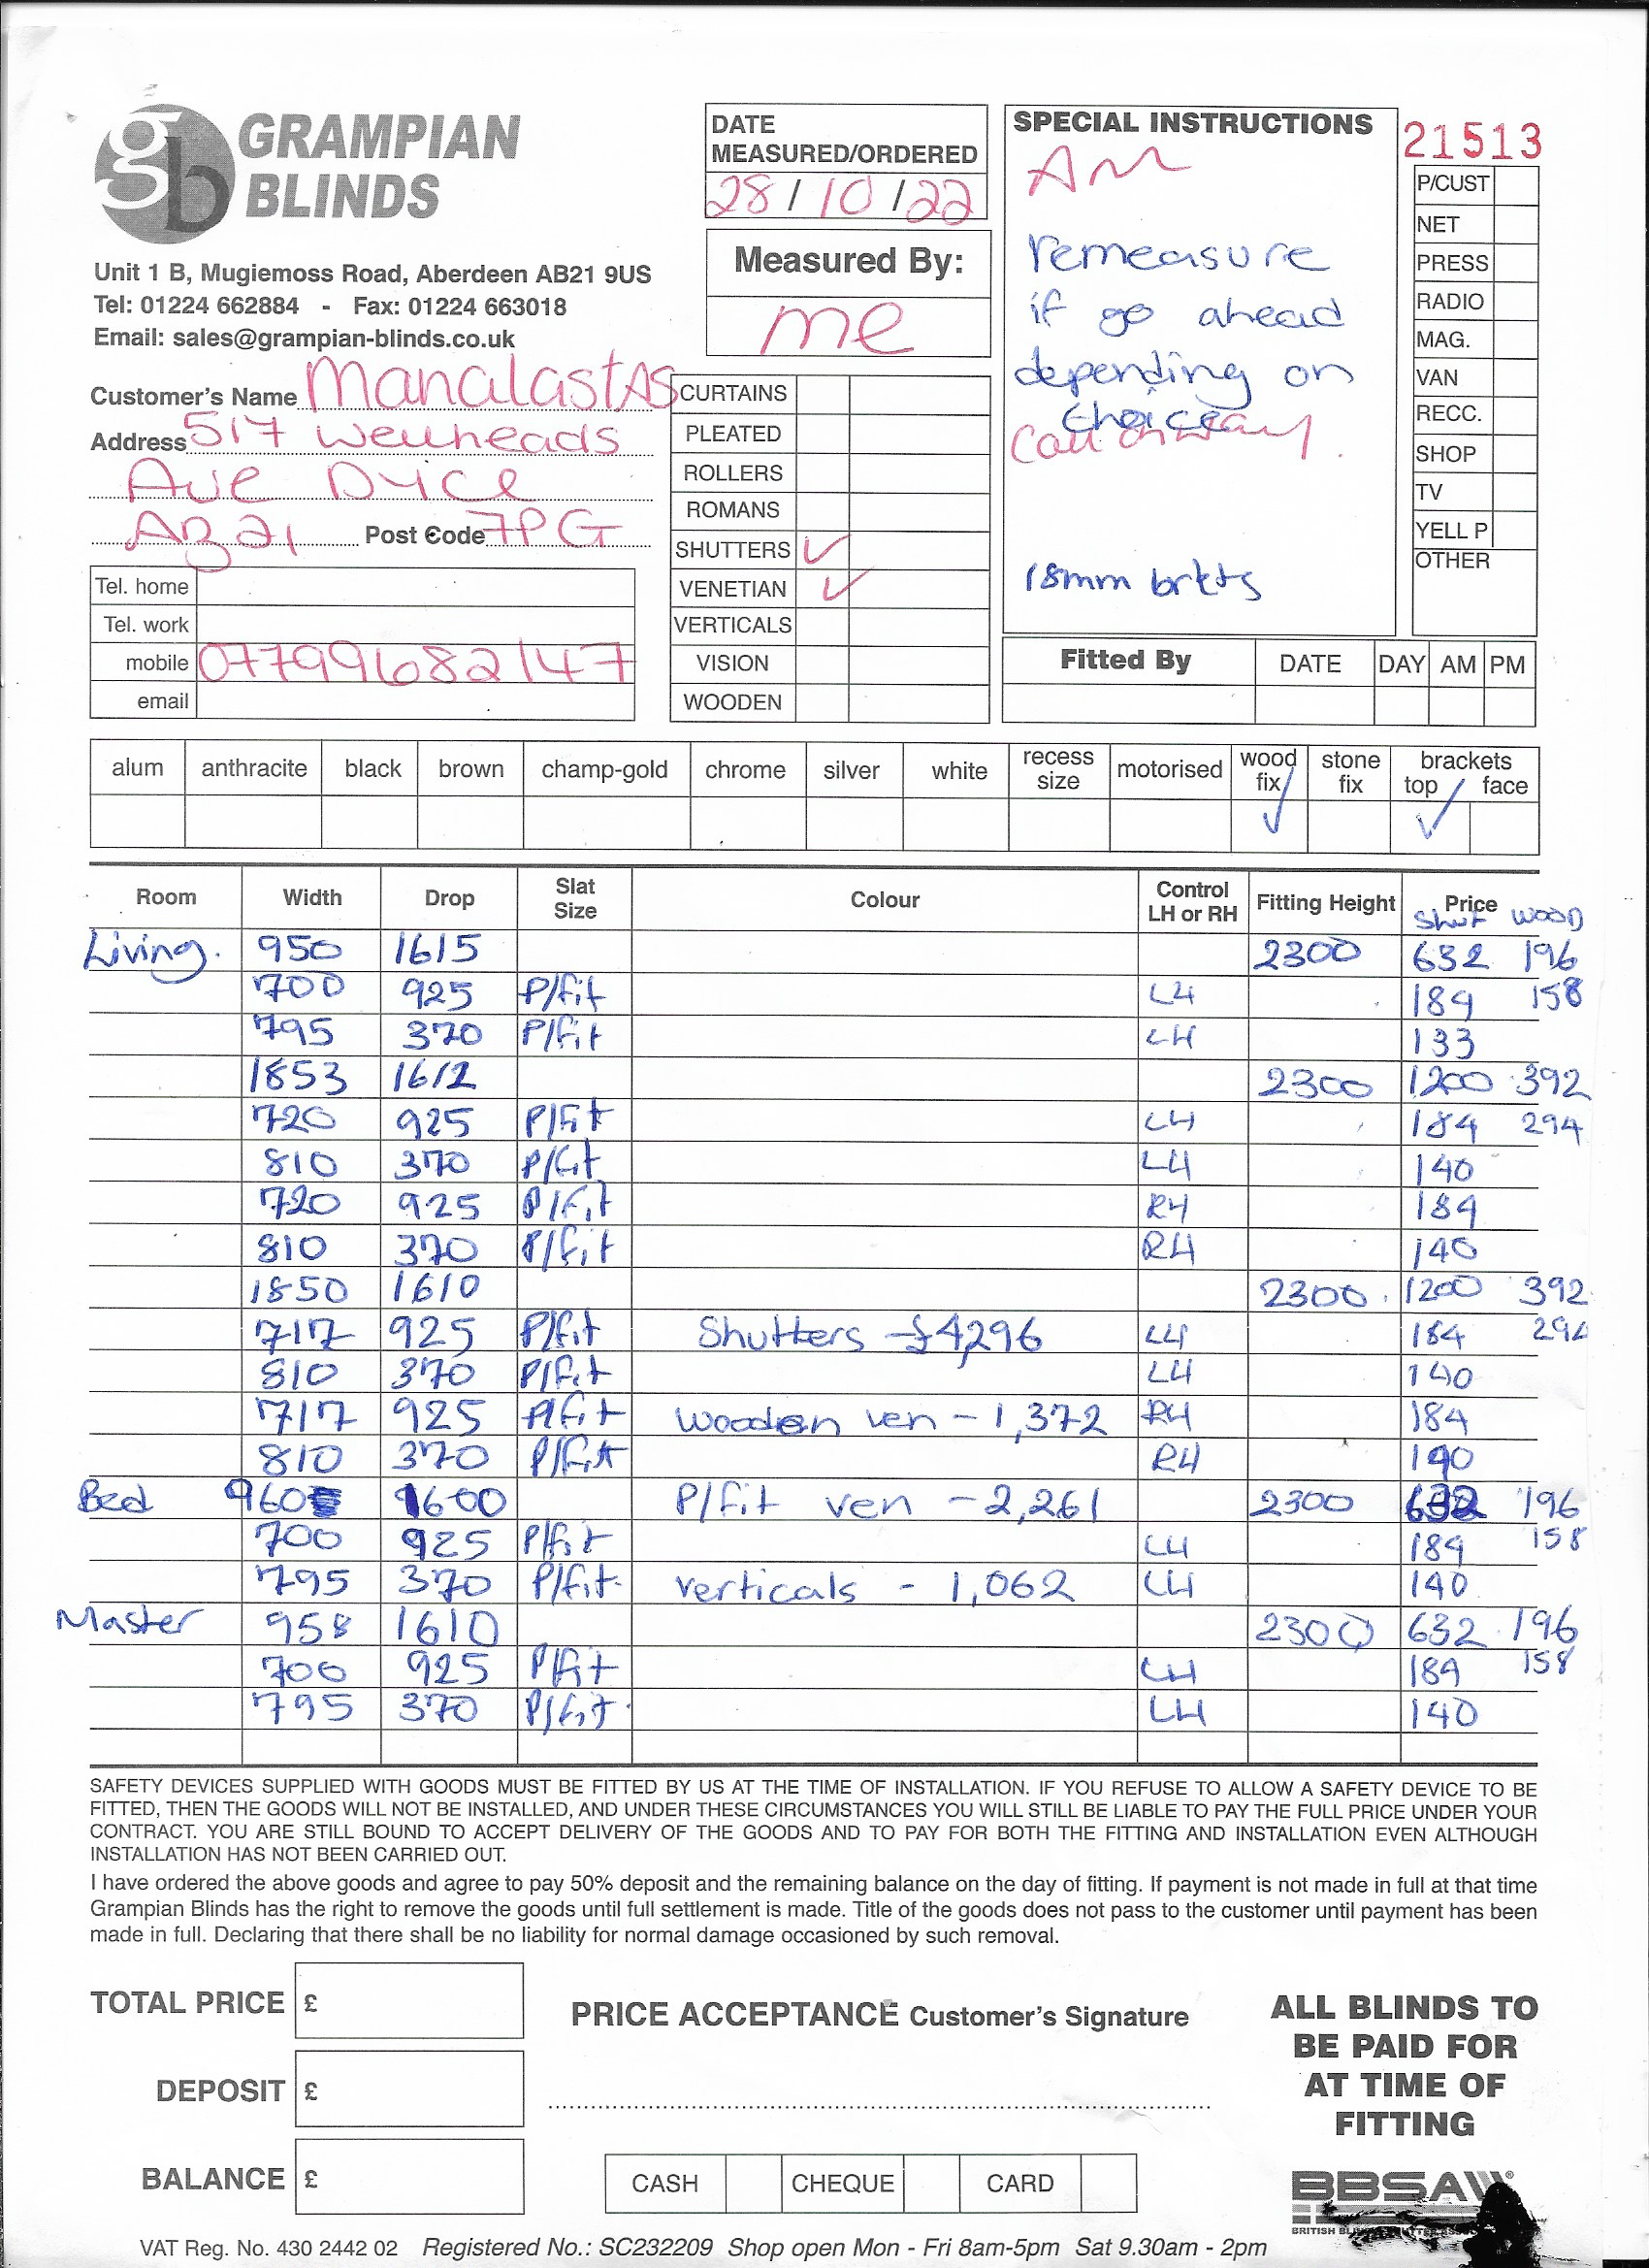 gb GRAMPIAN
BLINDS
Unit 1 B, Mugiemoss Road, Aberdeen AB21 9US
Tel: 01224 662884 - Fax: 01224 663018
Email: sales@grampian-blinds.co.uk
DATE
MEASURED/ORDERED
28/10/22
Measured By:
me
SPECIAL INSTRUCTIONS
AM
remeasure
if go ahead
depending on
choice
Call on way.
18mm brkts
21513
P/CUST
NET
PRESS
RADIO
MAG.
VAN
RECC.
SHOP
TV
YELL P
OTHER
Customer's Name Manalastas
Address 517 Wellheads
Ave Dyce
AB21 Post Code 7PG
Tel. home
Tel. work
mobile 07799682147
email
CURTAINS
PLEATED
ROLLERS
ROMANS
SHUTTERS ✓
VENETIAN ✓
VERTICALS
VISION
WOODEN
Fitted By DATE DAY AM PM
alum anthracite black brown champ-gold chrome silver white recess size motorised wood fix stone fix brackets top / face
✓ ✓
Room Width Drop Slat Size Colour Control LH or RH Fitting Height Price
Shut WOOD
Living. 950 1615 2300 632 196
700 925 P/fit LH 184 158
795 370 P/fit LH 133
1853 1612 2300 1200 392
720 925 P/fit LH 184 294
810 370 P/fit LH 140
720 925 P/fit RH 184
810 370 P/fit RH 140
1850 1610 2300 1200 392
717 925 P/fit Shutters - £4,296 LH 184 294
810 370 P/fit LH 140
717 925 P/fit Wooden ven - 1,372 RH 184
810 370 P/fit RH 140
Bed 960 1600 P/fit ven - 2,261 2300 632 196
700 925 P/fit LH 184 158
795 370 P/fit verticals - 1,062 LH 140
Master 958 1610 2300 632 196
700 925 P/fit LH 184 158
795 370 P/fit LH 140
SAFETY DEVICES SUPPLIED WITH GOODS MUST BE FITTED BY US AT THE TIME OF INSTALLATION. IF YOU REFUSE TO ALLOW A SAFETY DEVICE TO BE
FITTED, THEN THE GOODS WILL NOT BE INSTALLED, AND UNDER THESE CIRCUMSTANCES YOU WILL STILL BE LIABLE TO PAY THE FULL PRICE UNDER YOUR
CONTRACT. YOU ARE STILL BOUND TO ACCEPT DELIVERY OF THE GOODS AND TO PAY FOR BOTH THE FITTING AND INSTALLATION EVEN ALTHOUGH
INSTALLATION HAS NOT BEEN CARRIED OUT.
I have ordered the above goods and agree to pay 50% deposit and the remaining balance on the day of fitting. If payment is not made in full at that time
Grampian Blinds has the right to remove the goods until full settlement is made. Title of the goods does not pass to the customer until payment has been
made in full. Declaring that there shall be no liability for normal damage occasioned by such removal.
TOTAL PRICE £
DEPOSIT £
BALANCE £
PRICE ACCEPTANCE Customer's Signature
CASH CHEQUE CARD
ALL BLINDS TO
BE PAID FOR
AT TIME OF
FITTING
BBSA
BRITISH
VAT Reg. No. 430 2442 02 Registered No.: SC232209 Shop open Mon - Fri 8am-5pm Sat 9.30am - 2pm